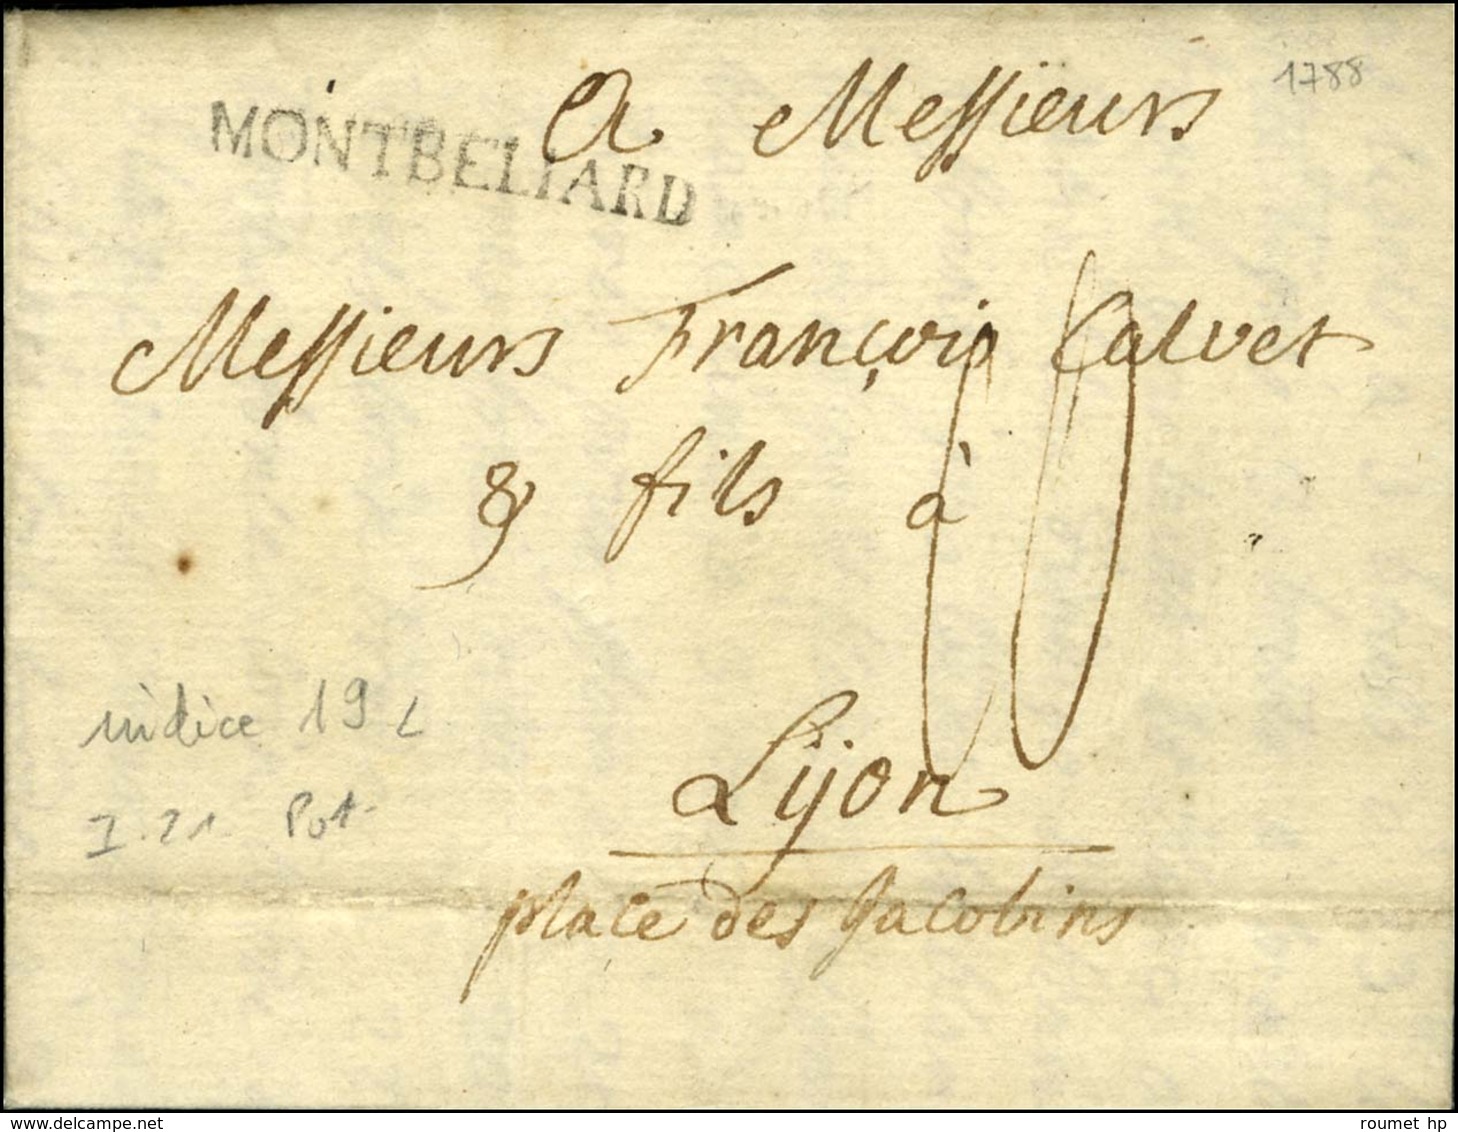 1788
MONTBELIARD
A Messieurs
Messieurs François Calvet
& fils à
10
Lyon
place des Jacobins
indice 19
I. 21 Pot
delcampe.net
roumet hp